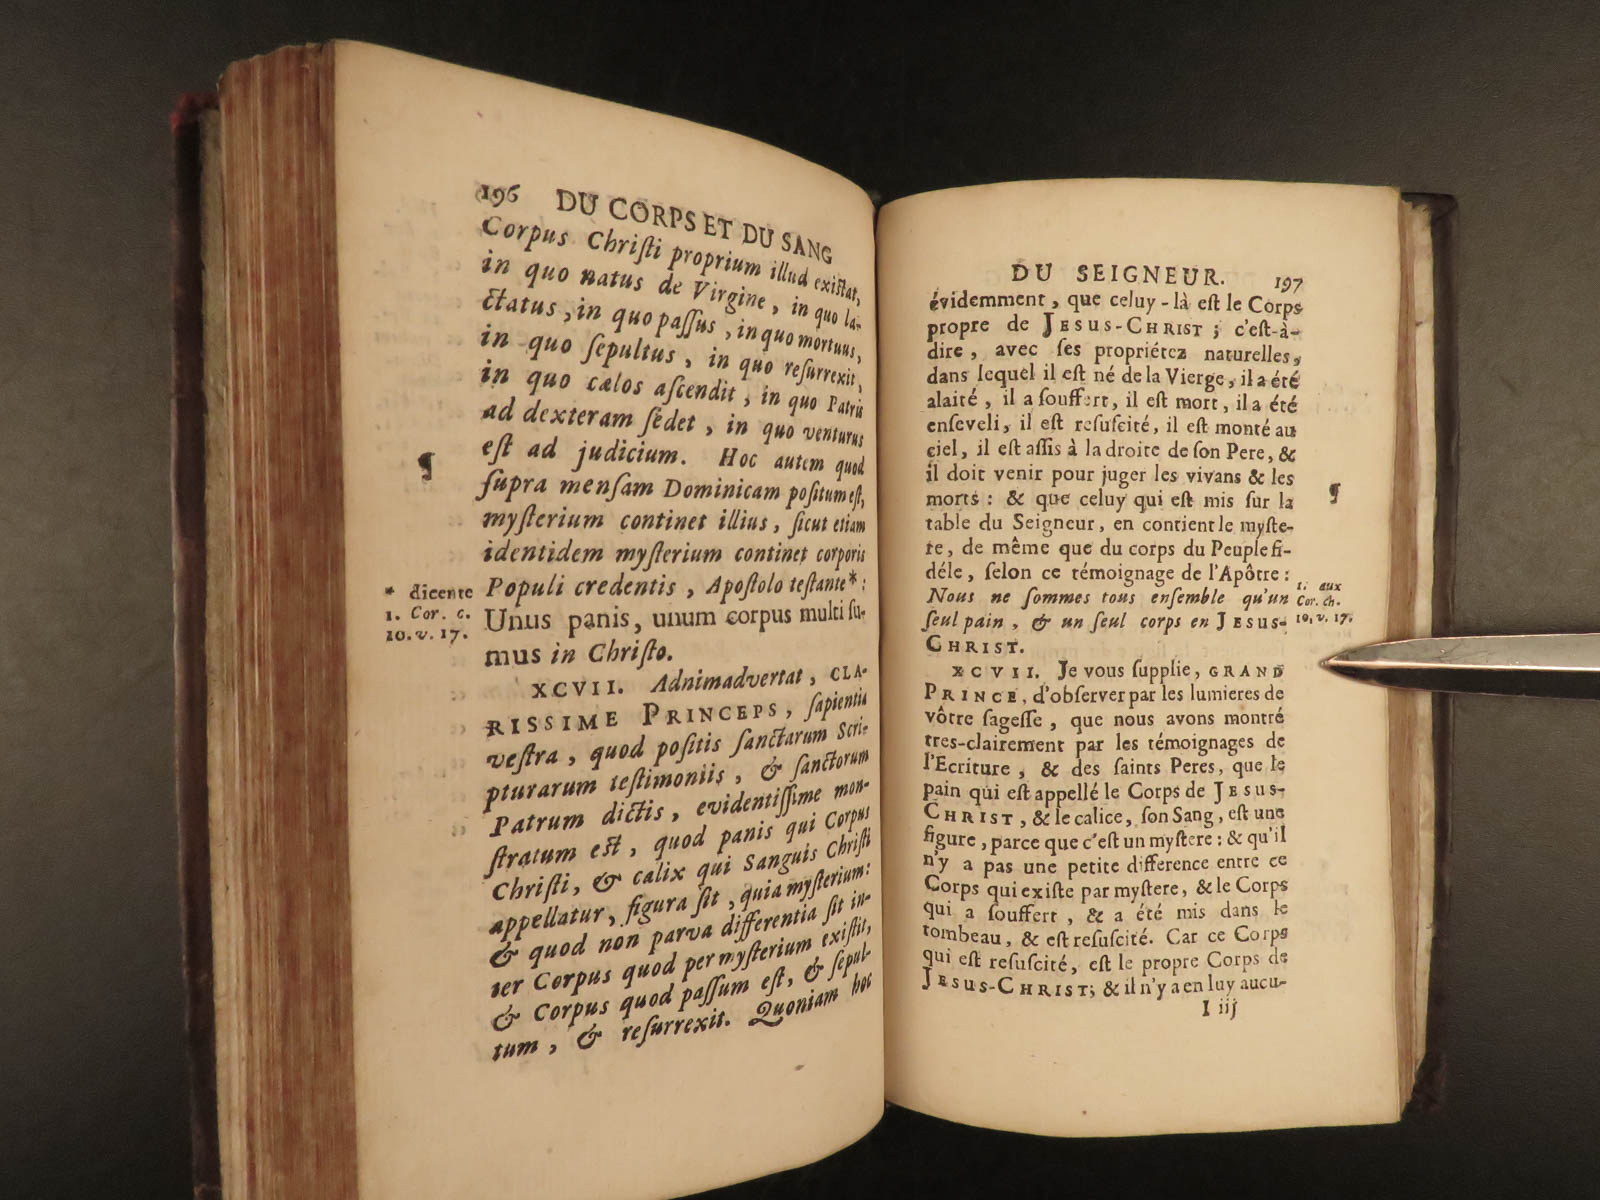 196 DU CORPS ET DU SANG
Corpus Chriſti proprium illud exiſtat,
in quo natus de Virgine, in quo la-
ctatus, in quo paſſus, in quo mortuus,
in quo ſepultus, in quo reſurrexit,
in quo cælos aſcendit, in quo Patris
ad dexteram ſedet, in quo venturus
eſt ad judicium. Hoc autem quod
¶
ſupra menſam Dominicam poſitum eſt,
myſterium continet illius, ſicut etiam
identidem myſterium continet corporis
Populi credentis, Apoſtolo teſtante*:
* dicente
1. Cor. c.
10. v. 17.
Unus panis, unum corpus multi ſu-
mus in Chriſto.
XCVII. Adnimadvertat, CLA-
RISSIME PRINCEPS, ſapientia
veſtra, quod poſitis ſanctarum Scri-
pturarum teſtimoniis, & ſanctorum
Patrum dictis, evidentiſſime mon-
ſtratum eſt, quod panis qui Corpus
Chriſti, & calix qui Sanguis Chriſti
appellatur, figura ſit, quia myſterium:
& quod non parva differentia ſit in-
ter Corpus quod per myſterium exiſtit,
& Corpus quod paſſum eſt, & ſepul-
tum, & reſurrexit. Quoniam hoc
DU SEIGNEUR. 197
évidemment, que celuy-là eſt le Corps
propre de JESUS-CHRIST; c'eſt-à-
dire, avec ſes propriétez naturelles,
dans lequel il eſt né de la Vierge, il a été
alaité, il a ſouffert, il eſt mort, il a été
enſeveli, il eſt reſuſcité, il eſt monté au
ciel, il eſt aſſis à la droite de ſon Pere, &
il doit venir pour juger les vivans & les
morts: & que celuy qui eſt mis ſur la
¶
table du Seigneur, en contient le myſte-
re, de même que du corps du Peuple fi-
déle, ſelon ce témoignage de l'Apôtre:
Nous ne ſommes tous enſemble qu'un
ſeul pain, & un ſeul corps en JESUS-
CHRIST.
1. aux
Cor. ch.
10. v. 17.
XCVII. Je vous ſupplie, GRAND
PRINCE, d'obſerver par les lumieres de
vôtre ſageſſe, que nous avons montré
tres-clairement par les témoignages de
l'Ecriture, & des ſaints Peres, que le
pain qui eſt appellé le Corps de JESUS-
CHRIST, & le calice, ſon Sang, eſt une
figure, parce que c'eſt un myſtere: & qu'il
n'y a pas une petite difference entre ce
Corps qui exiſte par myſtere, & le Corps
qui a ſouffert, & a été mis dans le
tombeau, & eſt reſuſcité. Car ce Corps
qui eſt reſuſcité, eſt le propre Corps de
JESUS-CHRIST; & il n'y a en luy aucu-
I iij